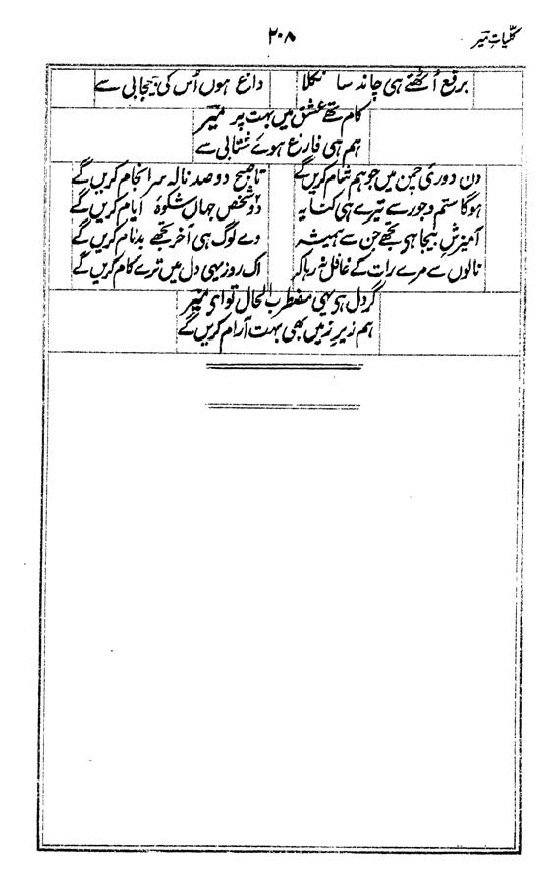 کلیاتِ میر
۲۰۸
برقع اُٹھتے ہی چاند سا نکلا داغ ہوں اُس کی بےحجابی سے
کام تھے عشق میں بہت پر میر
ہم ہی فارغ ہوئے شتابی سے
دن دوریِ چمن میں جو ہم شام کریں گے تا صبح دو صد نالہ سرانجام کریں گے
ہوگا ستم و جور سے تیرے ہی کنایہ دو شخص جہاں شکوۂ ایام کریں گے
آمیزشِ بیجا ہی تجھے جن سے ہمیشہ وے لوگ ہی آخر تجھے بدنام کریں گے
نالوں سے مرے رات کے غافل نہ رہا کر اک روز یہی دل میں ترے کام کریں گے
گر دل ہی یہی مضطرب الحال تو ای میر
ہم زیرِ زمیں بھی بہت آرام کریں گے